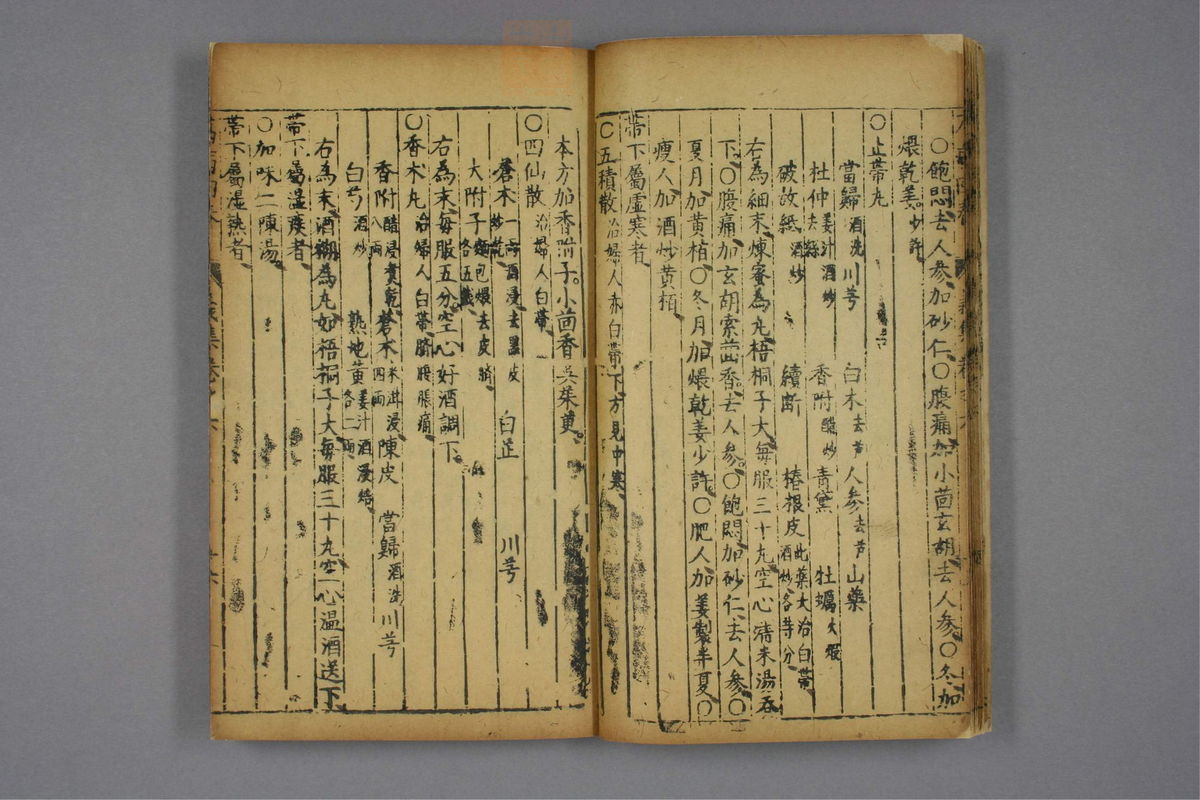 ○飽悶去人參加砂仁○腹痛加小茴玄胡去人參○冬加
煨乾姜少許
○止帶丸
當歸酒洗 川芎 白术去芦 人參去芦 山藥
杜仲姜汁酒炒去絲 香附醋炒 青黛 牡蠣火煅
破故紙酒炒 續斷 椿根皮此藥大治白帶酒炒各等分
右為細末煉蜜為丸梧桐子大每服三十丸空心清米湯吞
下○腹痛加玄胡索茴香去人參○飽悶加砂仁去人參○
夏月加黄栢○冬月加煨乾姜少許○肥人加姜製半夏○
瘦人加酒炒黄栢
帶下屬虛寒者
○五積散治婦人赤白帶下方見中寒
本方加香附子小茴香吳茱萸
○四仙散治婦人白帶
蒼术一兩酒浸去黑皮炒乾 白芷 川芎
大附子麵包煨去皮臍各五錢
右為末每服五分空心好酒調下
○香术丸治婦人白帶臍腰脹痛
香附醋浸煑乾八兩 蒼术米泔浸四兩 陳皮 當歸酒洗 川芎
白芍酒炒 熟地黄姜汁酒浸焙各二兩
右為末酒糊為丸如梧桐子大每服三十丸空心温酒送下
帶下屬濕痰者
○加味二陳湯
帶下屬濕熱者